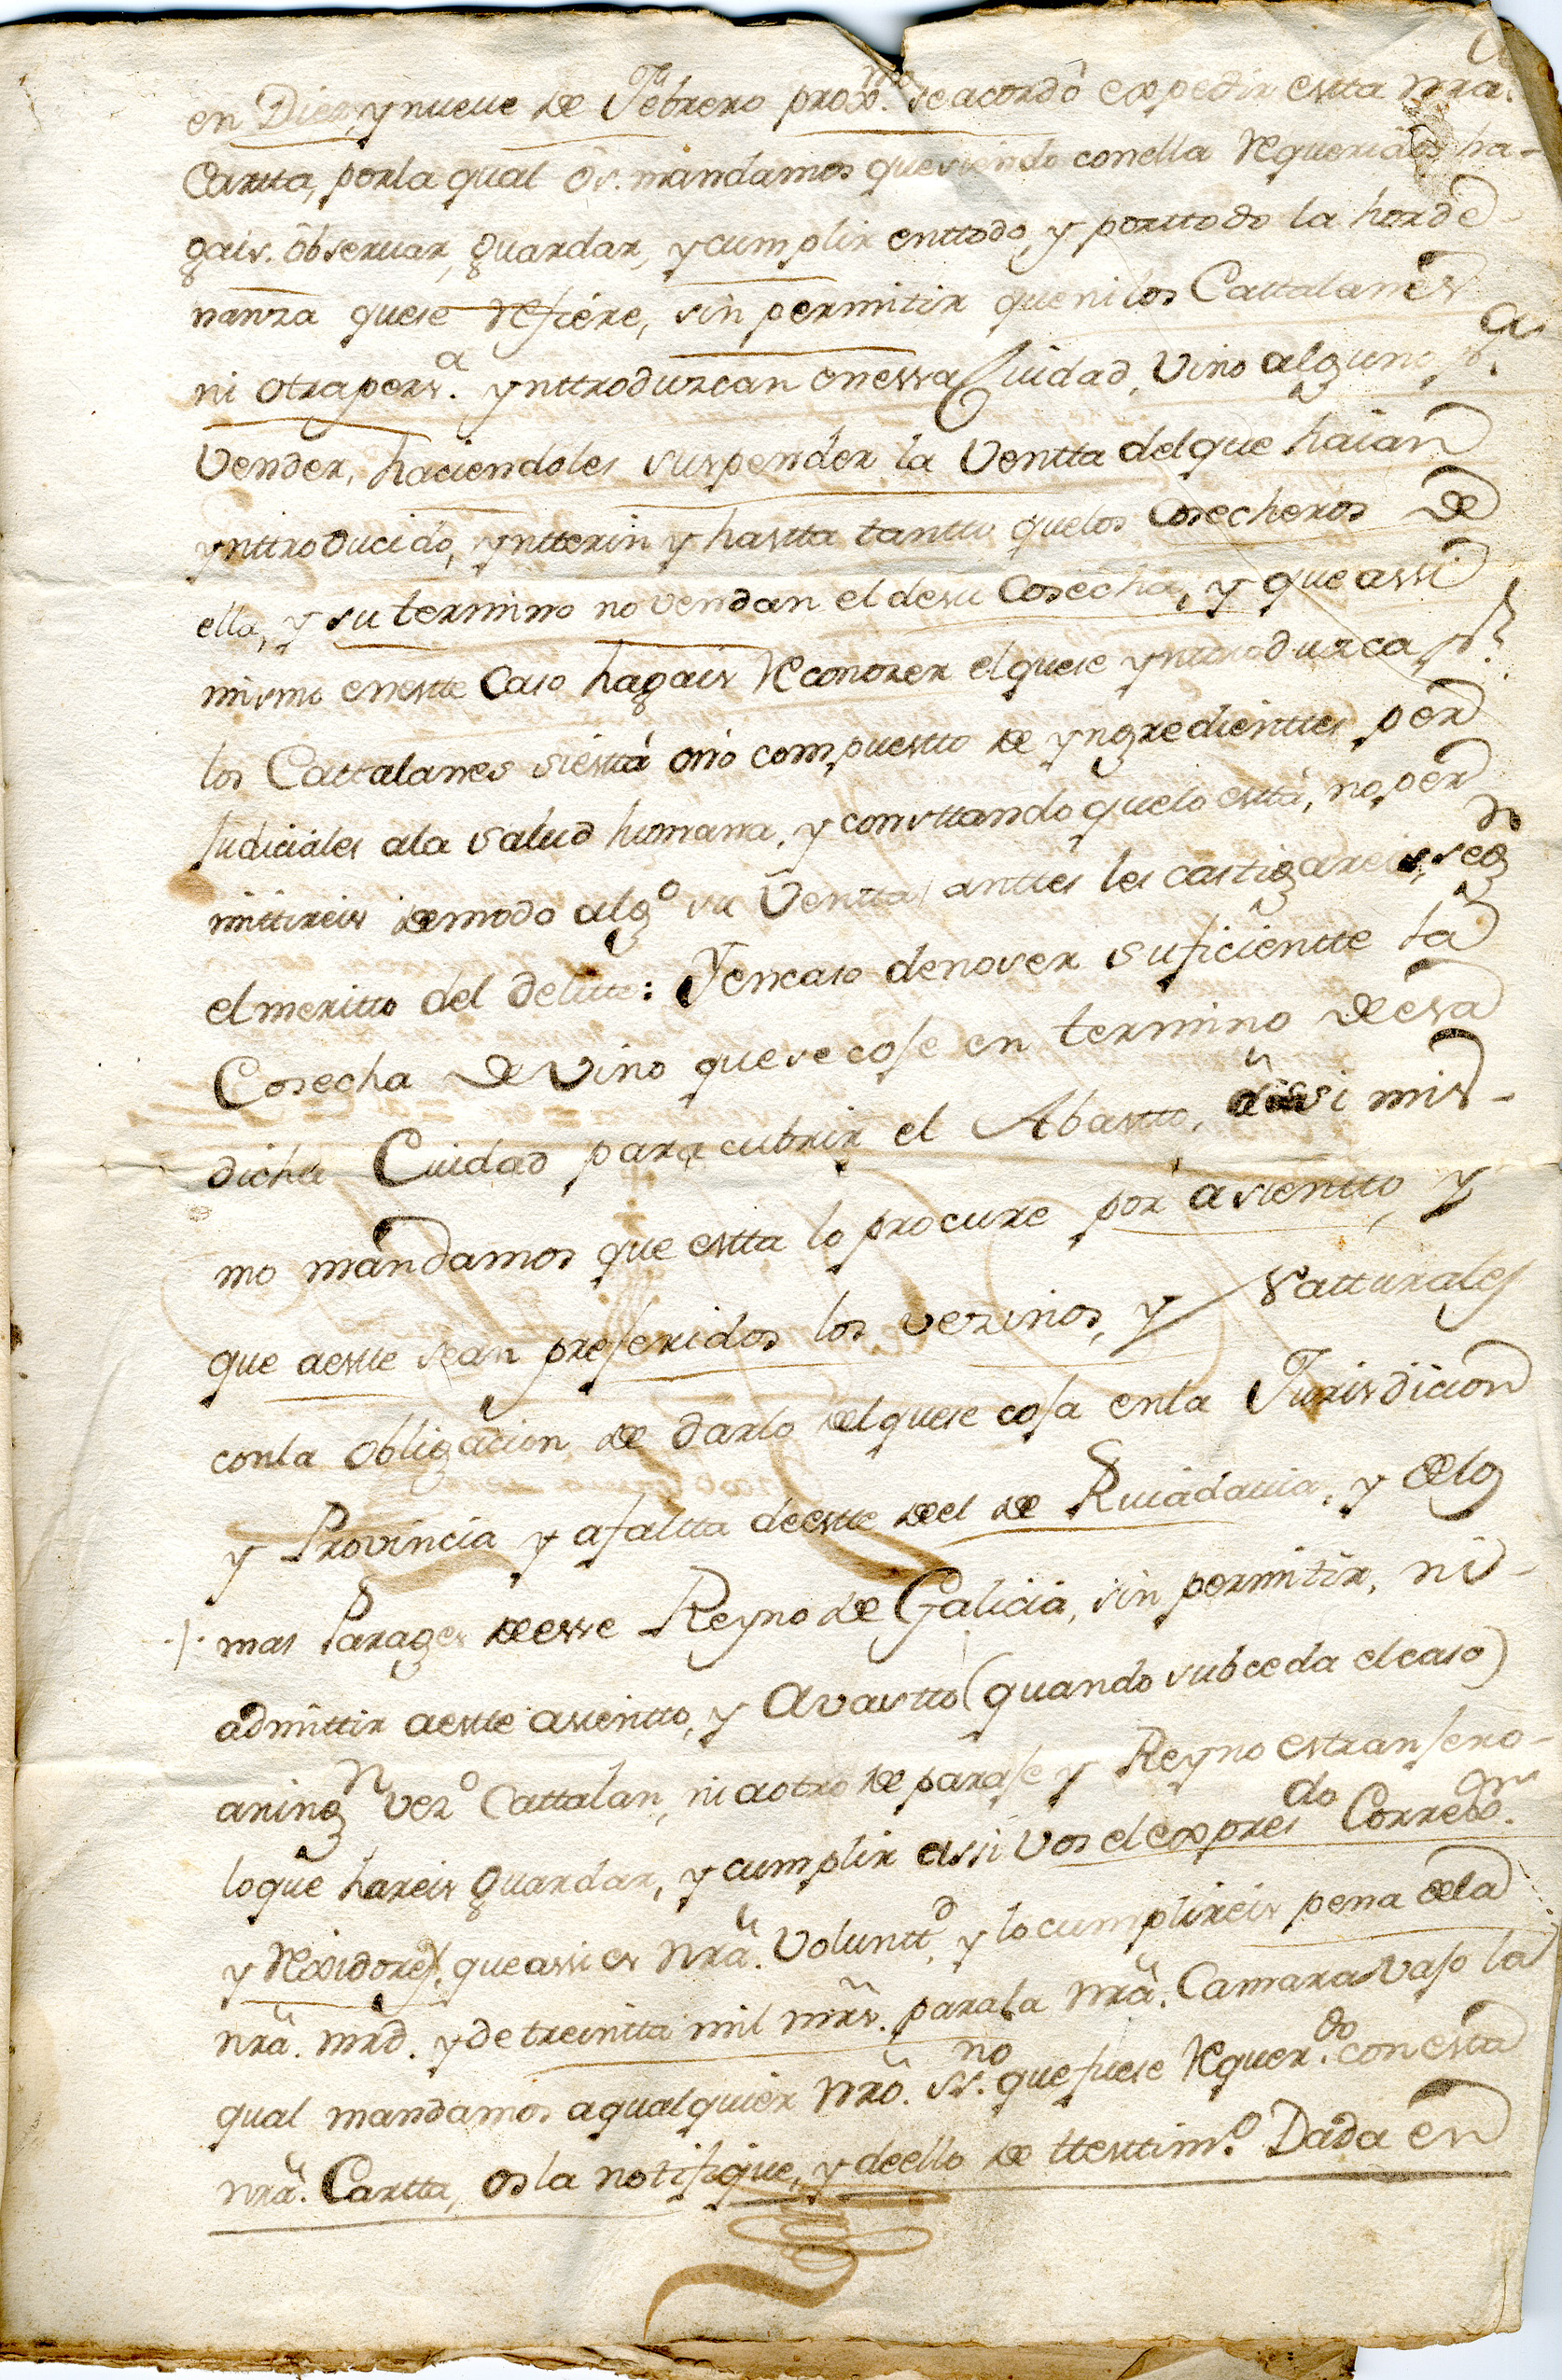 en Diez, y nueue de Febrero prox.mo se acordò expedir estta nrã.
Cartta, por la qual òs. mandamos que siendo con ella Requeridos ha-
gais. observar, guardar, y cumplir en ttodo, y por ttodo la horde-
nanza que se Refiere, sin permitir que ni los Cattalanes
ni otra pers.a ynttroduzcan en essa Ciudad, Vino alguno p.a
Vender, haciendoles suspender la Ventta del que haian
ynttroducido, yntterin y hastta tantto que los Cosecheros de
ella, y su termino no vendan el de su Cosecha, y que assi
mismo en estte Caso hagais Reconozer el que se ynttroduzca p.r
los Cattalanes si està o nò compuestto de yngredienttes per
Judiciales a la salud humana, y consttando que lo esttà, no per
mittireis de modo alg.o su Ventta, anttes les castigareis, seg.do
el meritto del delitto: Y en caso de no ser suficientte la
Cosecha de Vino que se coje en termino de esa
dicha Ciudad para cubrir el Abastto, assi mis-
mo mandamos que estta lo procure por asientto, y
que a estte sean preferidos los vezinos, y Natturales
con la obligacion de darlo del que se coja en la Jurisdicion
y Provincia y a faltta de estte del de Riuadauia, y de los
mas Parages de esse Reyno de Galicia, sin permitir, ni-
admittir a estte asientto, y Avastto (quando subceda el caso)
a ning.n vez.o Cattalan, ni a otro de paraje y Reyno estranjero-
lo que hareis guardar, y cumplir assi Vos el expres.do Corred.or
y Rexidores, que assi es nrã. Voluntt.d, y lo cumplireis pena de la
nrã. mrd. y de treintta mil mrs. para la nrã. Camara vajo la
qual mandamos a qualquier nrõ. ss.no que fuese Requer.do con esta
nrã. Cartta, os la notifique, y de ello de ttesttim.o Dada en